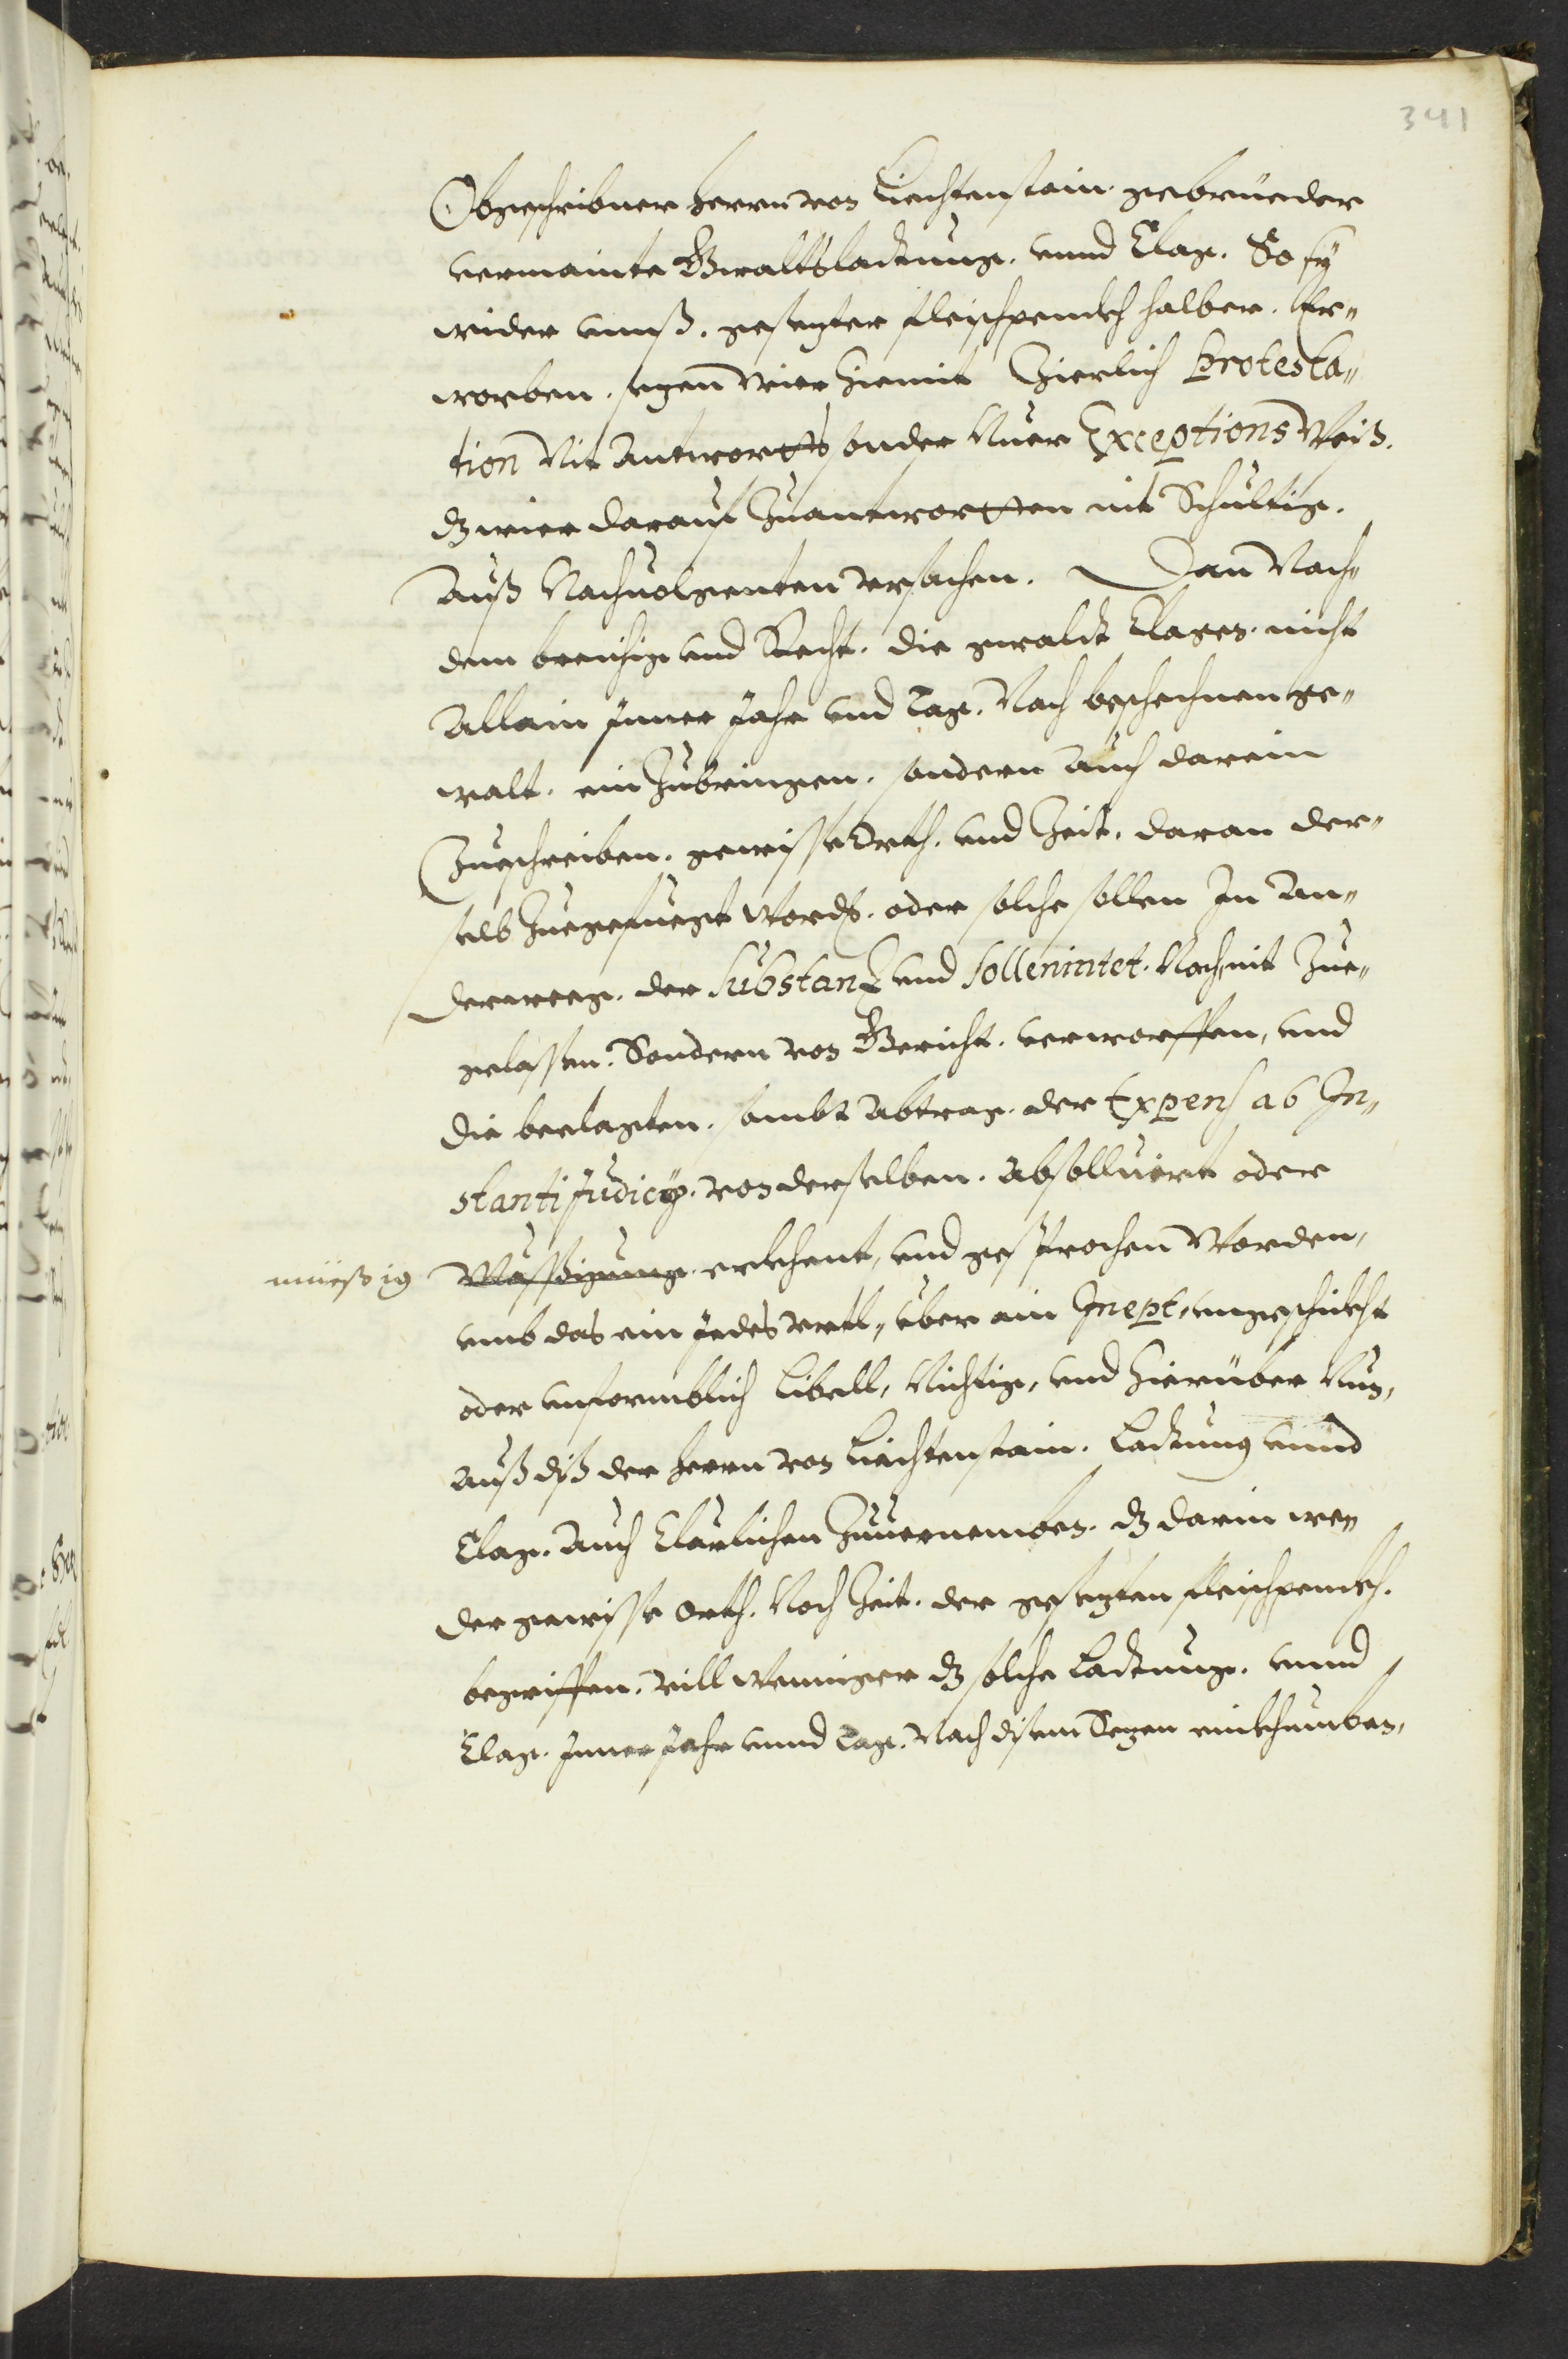 341
Obgeschribner Herrn von Liechtenstain gebrueder
vermainte Gwaltsladtung. vnnd Clag. So sy
wider vnnß. gesezter fleischpenckh halber. Er„
worben. sezen wier hiemit Zierlich Protesta„
tion Nit Antworts sonder Nuer Exceptions Weiß.
dz wier darauf Zuantwortten nit Schultig.
Auß Nachuolgenten Vrsachen. Dan Nach„
dem breichig vnd Recht. die gwaldt Clagen. nicht
Allain Inner Jahr vnd Tag. Nach beschechnen ge„
walt. ein Zubringen. sondern Auch darein
Zueschreiben. gewisse Orth. vnd Zeit. daran der„
selb Zuegefuegt Wordt. oder solche sollen In An„
derweeg. der Substanz vnd Sollenintet. Noch nit Zue„
gelassen. Sondern von Gericht. verworffen, vnd
die beclagten. sambt Abtrag. der Expens ab In„
stanti Judicy. von derselben. Absolluiert oder
müeßig Mässigung. erkhent, vnd gesprochen Worden,
vmb das ein Jedes Vrtl„ über ain Inept, vngeschickht
oder vnformblich Libell, Nichtig, vnd hierüber Nun,
auß diß der Herrn von Liechtenstain. Ladtung vnnd
Clag. Auch Clärlichen Zuuernemben. dz darin we„
der gewisse Orth. Noch Zeit. der gesezten fleischpenckh.
begriffen. Vill Weniger dz solche Ladtung. vnnd
Clag. Inner Jahr vnnd Tag. Nach disem Sezen einkhumben,